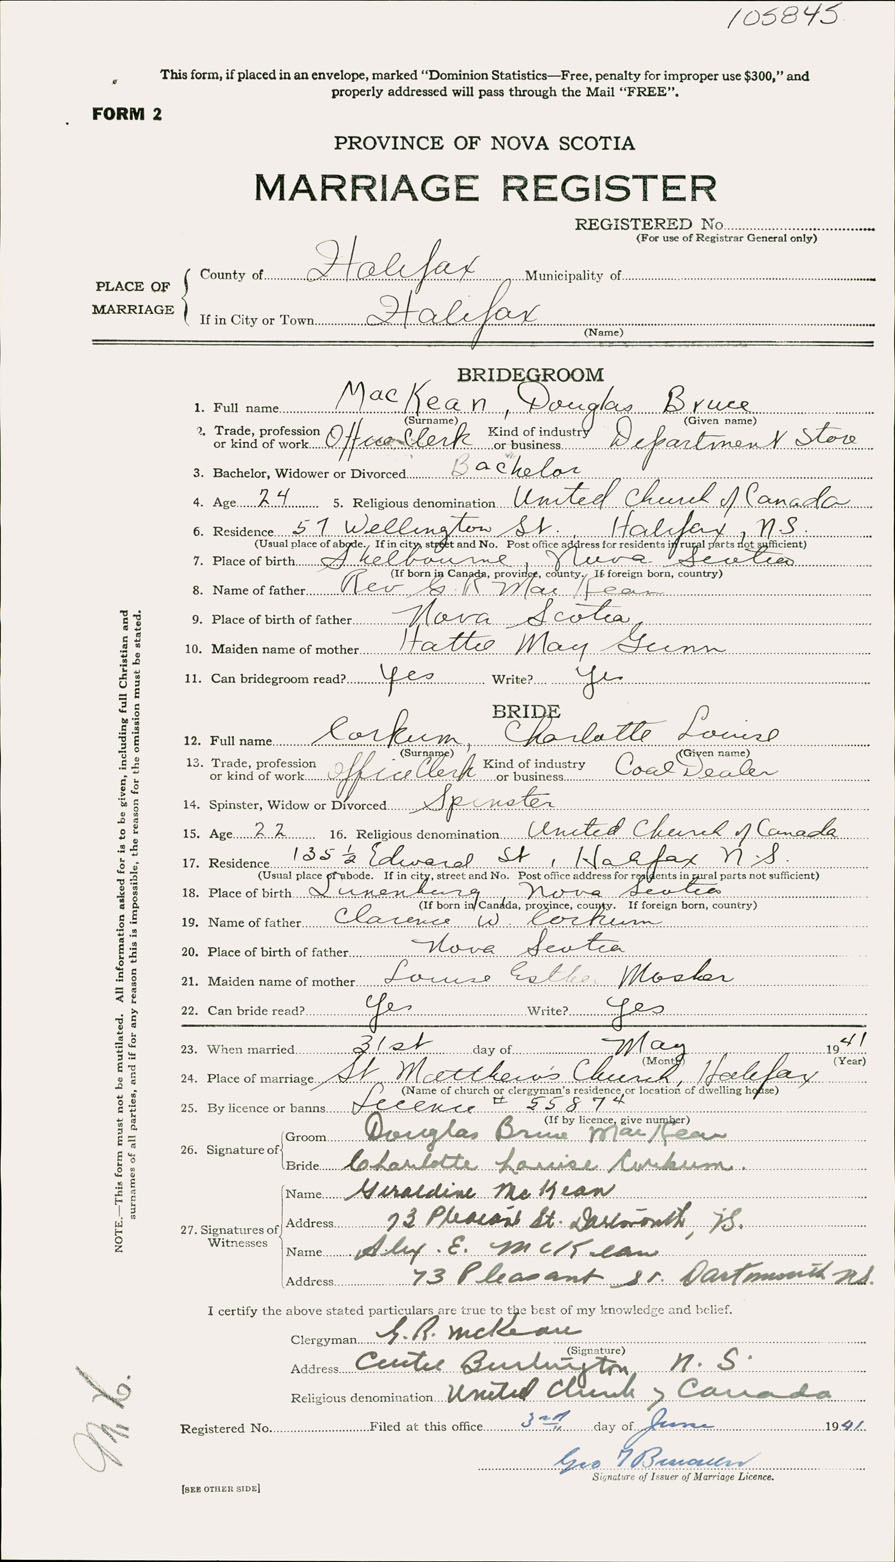 105845
This form, if placed in an envelope, marked "Dominion Statistics—Free, penalty for improper use $300," and
properly addressed will pass through the Mail "FREE".
FORM 2
PROVINCE OF NOVA SCOTIA
MARRIAGE REGISTER
REGISTERED No.
(For use of Registrar General only)
PLACE OF MARRIAGE
County of Halifax Municipality of
If in City or Town Halifax
(Name)
BRIDEGROOM
1. Full name MacKean, Douglas Bruce
(Surname) (Given name)
2. Trade, profession or kind of work Office Clerk Kind of industry or business Department Store
3. Bachelor, Widower or Divorced Bachelor
4. Age 24 5. Religious denomination United Church of Canada
6. Residence 57 Wellington St., Halifax, N.S.
(Usual place of abode. If in city, street and No. Post office address for residents in rural parts not sufficient)
7. Place of birth Shelbourne, Nova Scotia
(If born in Canada, province, county. If foreign born, country)
8. Name of father Rev G R MacKean
9. Place of birth of father Nova Scotia
10. Maiden name of mother Hattie May Gunn
11. Can bridegroom read? Yes Write? Yes
BRIDE
12. Full name Corkum, Charlotte Louise
(Surname) (Given name)
13. Trade, profession or kind of work Office Clerk Kind of industry or business Coal Dealer
14. Spinster, Widow or Divorced Spinster
15. Age 22 16. Religious denomination United Church of Canada
17. Residence 135½ Edward St, Halifax N.S.
(Usual place of abode. If in city, street and No. Post office address for residents in rural parts not sufficient)
18. Place of birth Lunenburg, Nova Scotia
(If born in Canada, province, county. If foreign born, country)
19. Name of father Clarence W. Corkum
20. Place of birth of father Nova Scotia
21. Maiden name of mother Louise Esther Mosher
22. Can bride read? Yes Write? Yes
23. When married 31st day of May 1941
(Month) (Year)
24. Place of marriage St Matthew's Church, Halifax
(Name of church or clergyman's residence or location of dwelling house)
25. By licence or banns Licence # 55874
(If by licence, give number)
26. Signature of
Groom Douglas Bruce MacKean
Bride Charlotte Louise Corkum.
27. Signatures of Witnesses
Name Geraldine McKean
Address 73 Pleasant St. Dartmouth, N.S.
Name Alex. E. McKean
Address 73 Pleasant St. Dartmouth N.S.
I certify the above stated particulars are true to the best of my knowledge and belief.
Clergyman G.R. McKean
(Signature)
Address Centre Burlington, N.S.
Religious denomination United Church of Canada
Registered No. Filed at this office 3rd day of June 1941
Signature of Issuer of Marriage Licence.
[SEE OTHER SIDE]
NOTE.—This form must not be mutilated. All information asked for is to be given, including full Christian and
surnames of all parties, and if for any reason this is impossible, the reason for the omission must be stated.